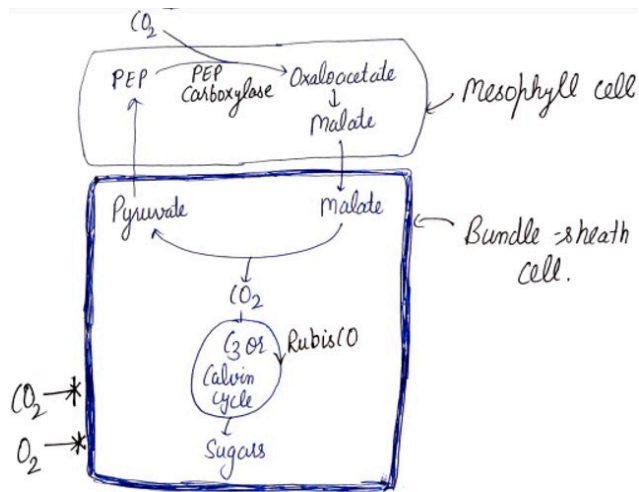 CO2
PEP
PEP
Carboxylase
Oxaloacetate
Malate
Mesophyll cell
Pyruvate
Malate
Bundle-sheath
cell.
CO2
C3 or
Calvin
cycle
RubisCO
CO2
O2
Sugars